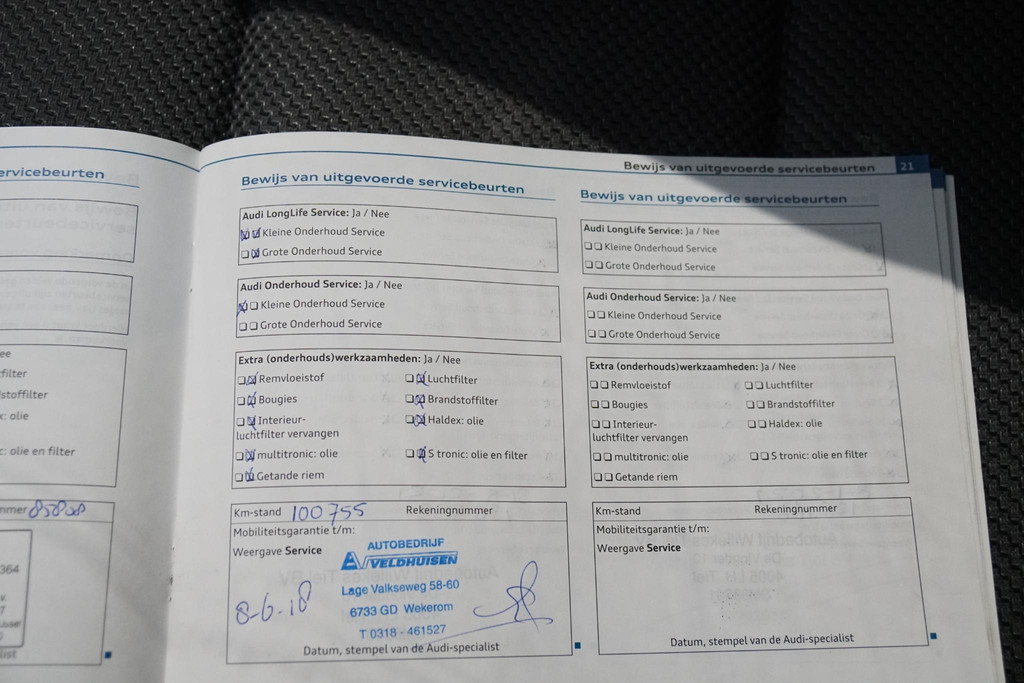 ervicebeurten
ee
filter
stoffilter
c: olie
c: olie en filter
mmer 85808
364
7
list
Bewijs van uitgevoerde servicebeurten 21
Bewijs van uitgevoerde servicebeurten
Audi LongLife Service: Ja / Nee
Kleine Onderhoud Service
Grote Onderhoud Service
Audi Onderhoud Service: Ja / Nee
Kleine Onderhoud Service
Grote Onderhoud Service
Extra (onderhouds)werkzaamheden: Ja / Nee
Remvloeistof Luchtfilter
Bougies Brandstoffilter
Interieur- Haldex: olie
luchtfilter vervangen
multitronic: olie S tronic: olie en filter
Getande riem
Km-stand 100755 Rekeningnummer
Mobiliteitsgarantie t/m:
Weergave Service
AUTOBEDRIJF
VELDHUISEN
Lage Valkseweg 58-60
6733 GD Wekerom
T 0318 - 461527
8-6-18
Datum, stempel van de Audi-specialist
Bewijs van uitgevoerde servicebeurten
Audi LongLife Service: Ja / Nee
Kleine Onderhoud Service
Grote Onderhoud Service
Audi Onderhoud Service: Ja / Nee
Kleine Onderhoud Service
Grote Onderhoud Service
Extra (onderhouds)werkzaamheden: Ja / Nee
Remvloeistof Luchtfilter
Bougies Brandstoffilter
Interieur- Haldex: olie
luchtfilter vervangen
multitronic: olie S tronic: olie en filter
Getande riem
Km-stand Rekeningnummer
Mobiliteitsgarantie t/m:
Weergave Service
Datum, stempel van de Audi-specialist